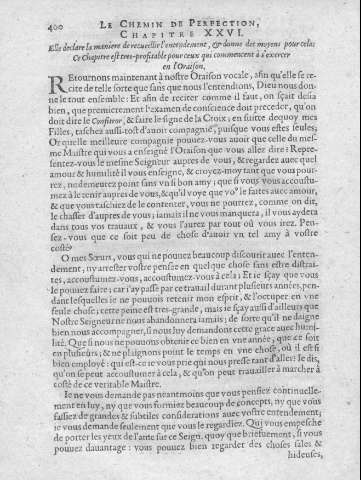 400
LE CHEMIN DE PERFECTION,
CHAPITRE XXVI.
Elle declare la maniere de recueillir l'entendement, & donne des moyens pour cela:
Ce Chapitre est tres-profitable pour ceux qui commencent à s'exercer
en l'Oraison.
REtournons maintenant à nostre Oraison vocale, afin qu'elle se re-
cite de telle sorte que sans que nous l'entendions, Dieu nous don-
ne le tout ensemble: Et afin de reciter comme il faut, on sçait desia
bien, que premierement l'examen de conscience doit preceder, qu'on
doit dire le Confiteor, & faire le signe de la Croix; en suitte dequoy mes
Filles, taschez aussi-tost d'avoir compagnie, puisque vous estes seules;
Or quelle meilleure compagnie pouvez-vous avoir que celle du mes-
me Maistre qui vous a enseigné l'Oraison que vous allez dire: Repre-
sentez-vous le mesme Seigneur aupres de vous, & regardez avec quel
amour & humilité il vous enseigne, & croyez-moy tant que vous pour-
rez, ne demeurez point sans vn si bon amy: que si vous vous accoustu-
mez à le tenir aupres de vous, & qu'il voye que vo⁹ le faites avec amour,
& que vous taschiez de le contenter, vous ne pourrez, comme on dit,
le chasser d'aupres de vous; iamais il ne vous manquera, il vous aydera
dans tous vos travaux, & vous l'aurez par tout où vous irez. Pen-
sez-vous que ce soit peu de chose d'avoir vn tel amy à vostre
costé?
O mes Sœurs, vous qui ne pouvez beaucoup discourir avec l'enten-
dement, ny arrester vostre pensée en quel que chose sans estre distrai-
tes, accoustumez-vous, accoustumez-vous à cela; Et ie sçay que vous
le pouvez faire; car i'ay passé par ce travail durant plusieurs années, pen-
dant lesquelles ie ne pouvois retenir mon esprit, & l'occuper en vne
seule chose; cette peine est tres-grande, mais ie sçay aussi d'ailleurs que
Nostre Seigneur ne nous abandonnera iamais; de sorte qu'il ne daigne
bien nous accompagner, si nous luy demandons cette grace avec humi-
lité. Que si nous ne pouvons obtenir ce bien en vne année, que ce soit
en plusieurs; & ne plaignons point le temps en vne chose, où il est si
bien employé: qui est-ce qui vous prie qui nous presse tant d'aller? Ie dis,
qu'on se peut accoustumer à cela, & qu'on peut travailler à marcher à
costé de ce veritable Maistre.
Ie ne vous demande pas neantmoins que vous pensiez continuelle-
ment en luy, ny que vous formiez beaucoup de concepts, ny que vous
fassiez de grandes & subtiles considerations avec vostre entendement;
ie vous demande seulement que vous le regardiez. Qui vous empesche
de porter les yeux de l'ame sur ce Seign. quoy que briefvement, si vous
pouvez davantage: vous pouvez bien regarder des choses sales &
hideuses,